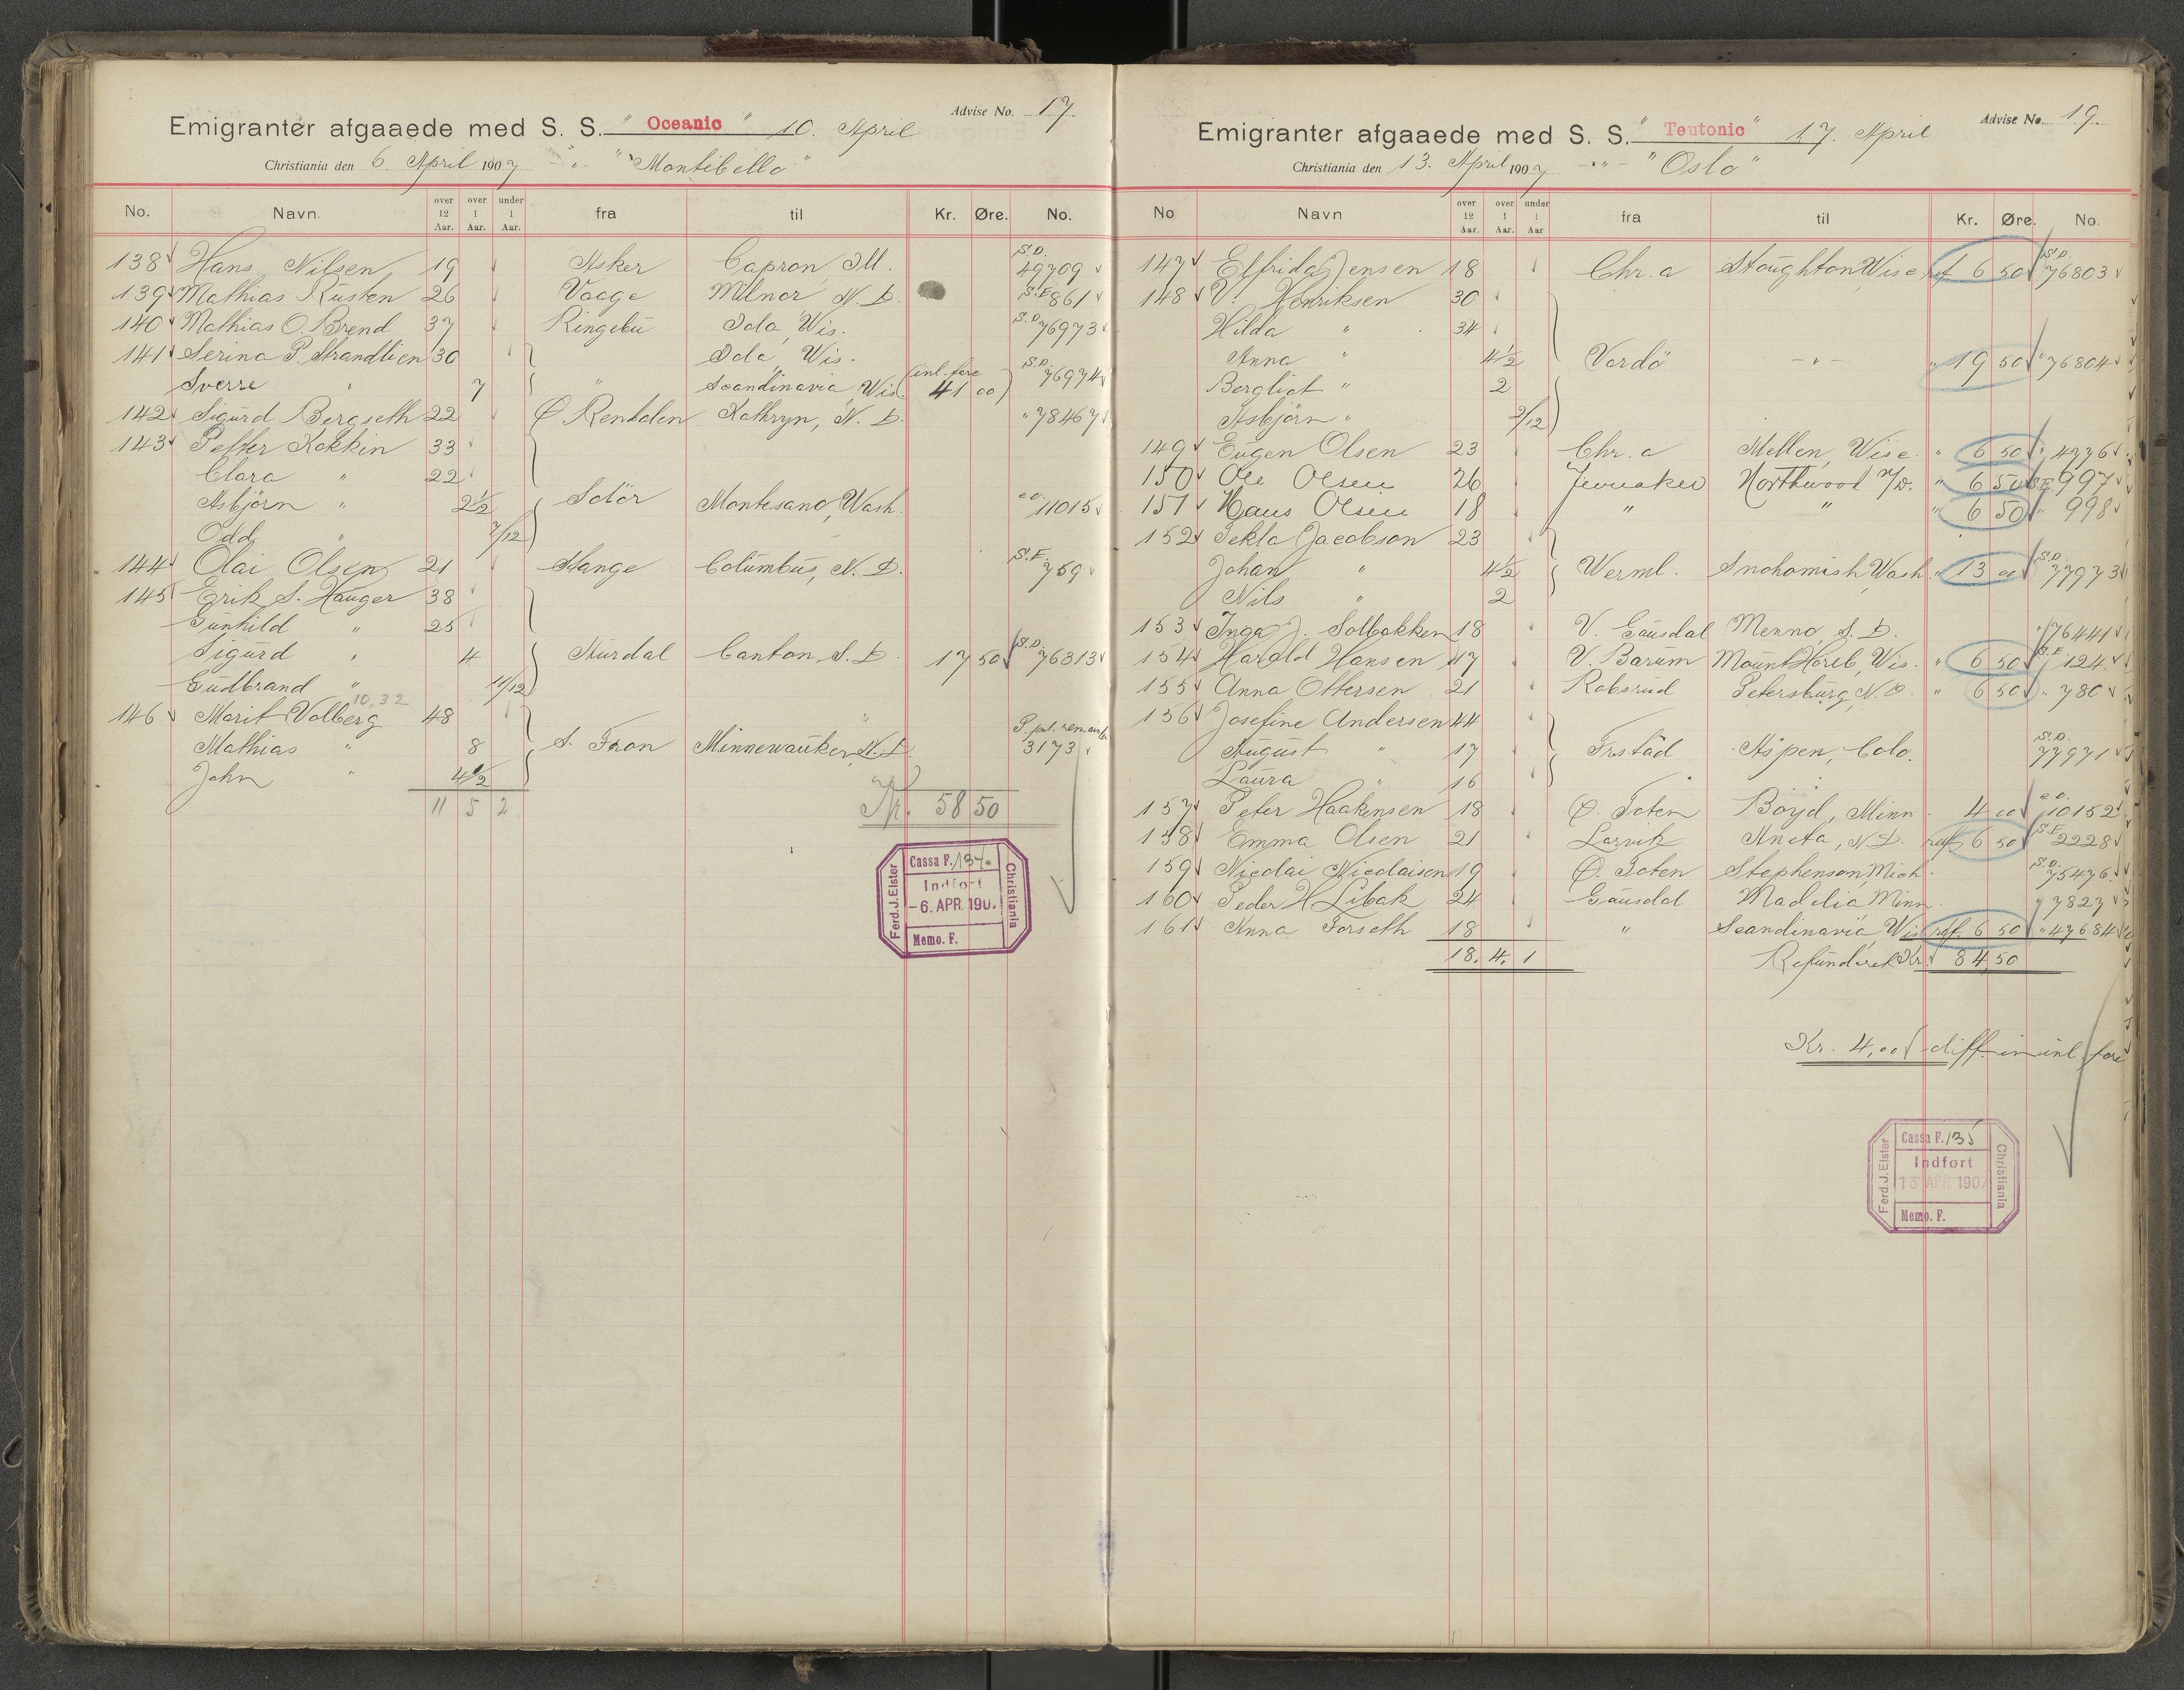 Advise No. 17.
Emigranter afgaaede med S. S. " Oceanic " 10. April
Christiania den 6. April 1907 - " - " Montebello "
No. Navn. over 12 Aar. over 1 Aar. under 1 Aar. fra til Kr. Øre. No.
138 Hans Nilsen 19 Asker Capron Ill. S.D. 49709
139 Mathias Rusten 26 Vaage Milnor N. D. S.E. 861
140 Mathias O. Brend 37 Ringebu Iola, Wis. S.D. 76973
141 Serina P. Strandlien 30 Iola, Wis.
Sverre " 7 " Scandinavia Wis. (inl. fare 41 00) S.D. 76974
142 Sigurd Bergseth 22 Ø Rendalen Kathryn, N. D. " 78467
143 Petter Kokkin 33
Clara " 22
Asbjörn " 2 1/2 Solör Montesano, Wash. e.o. 11015
Odd " 7/12
144 Olai Olsen 21 Stange Columbus, N. D. S.E. 759
145 Erik S. Hauger 38
Gunhild " 25
Sigurd " 4 Aurdal Canton, S. D. 17 50 S.D. 76313
Gudbrand " 11/12
10,32
146 Marit Volberg 48
Mathias " 8 S. Fron Minnewauken, N. D. P. pd. 3173
John " 4 1/2
11 5 2 Kr. 58 50
Ferd. J. Elster Cassa F. 134 Indført -6. APR. 190 Memo. F. Christiania
Advise No. 19.
Emigranter afgaaede med S. S. " Teutonic " 17. April
Christiania den 13. April 1907 - " - " Oslo "
No Navn over 12 Aar. over 1 Aar. under 1 Aar fra til Kr. Øre. No.
147 Elfrida Jensen 18 Chr.a Stoughton, Wisc ref 6 50 S.D. 76803
148 V. Henriksen 30
Hilda " 34
Anna " 4 1/2 Vardö - " - " 19 50 " 76804
Bergliot " 2
Asbjörn " 2/12
149 Eugen Olsen 23 Chr.a Mellen, Wisc. " 6 50 " 49761
150 Ole Olsen 26 Jevnaker Northwood N/D. " 6 50 S.E. 997
151 Hans Olsen 18 " " " 6 50 " 998
152 Tekla Jacobson 23
Johan " 4 1/2 Werml. Snohomish, Wash " 13 00 S.D. 77973
Nils " 2
153 Inga J. Solbakken 18 V. Gausdal Menno, S. D. " 76441
154 Harald Hansen 17 V. Bærum Mount Horeb, Wis. " 6 50 S.E. 124
155 Anna Ottersen 21 Robsrud Petersburg, N.D. " 6 50 " 780
156 Josefine Andersen 44
August " 17 Frstad Aspen, Colo. S.D. 77971
Laura " 16
157 Peter Haakensen 18 Ø. Toten Boyd, Minn. 4 00 e.o. 10152
158 Emma Olsen 21 Larvik Aneta, N. D. ref 6 50 S.E. 2228
159 Nicolai Nicolaisen 19 Ø. Toten Stephenson, Mich. S.D. 75476
160 Peder H Libak 24 Gausdal Madelia Minn. " 7827
161 Anna Forseth 18 " Scandinavia Wis ref. 6 50 " 47684
18. 4. 1 Refunderet Kr. 84,50
Kr. 4,00 diff. in inl. fare
Ferd. J. Elster Cassa F. 135 Indført 13 APR 190 Memo. F. Christiania